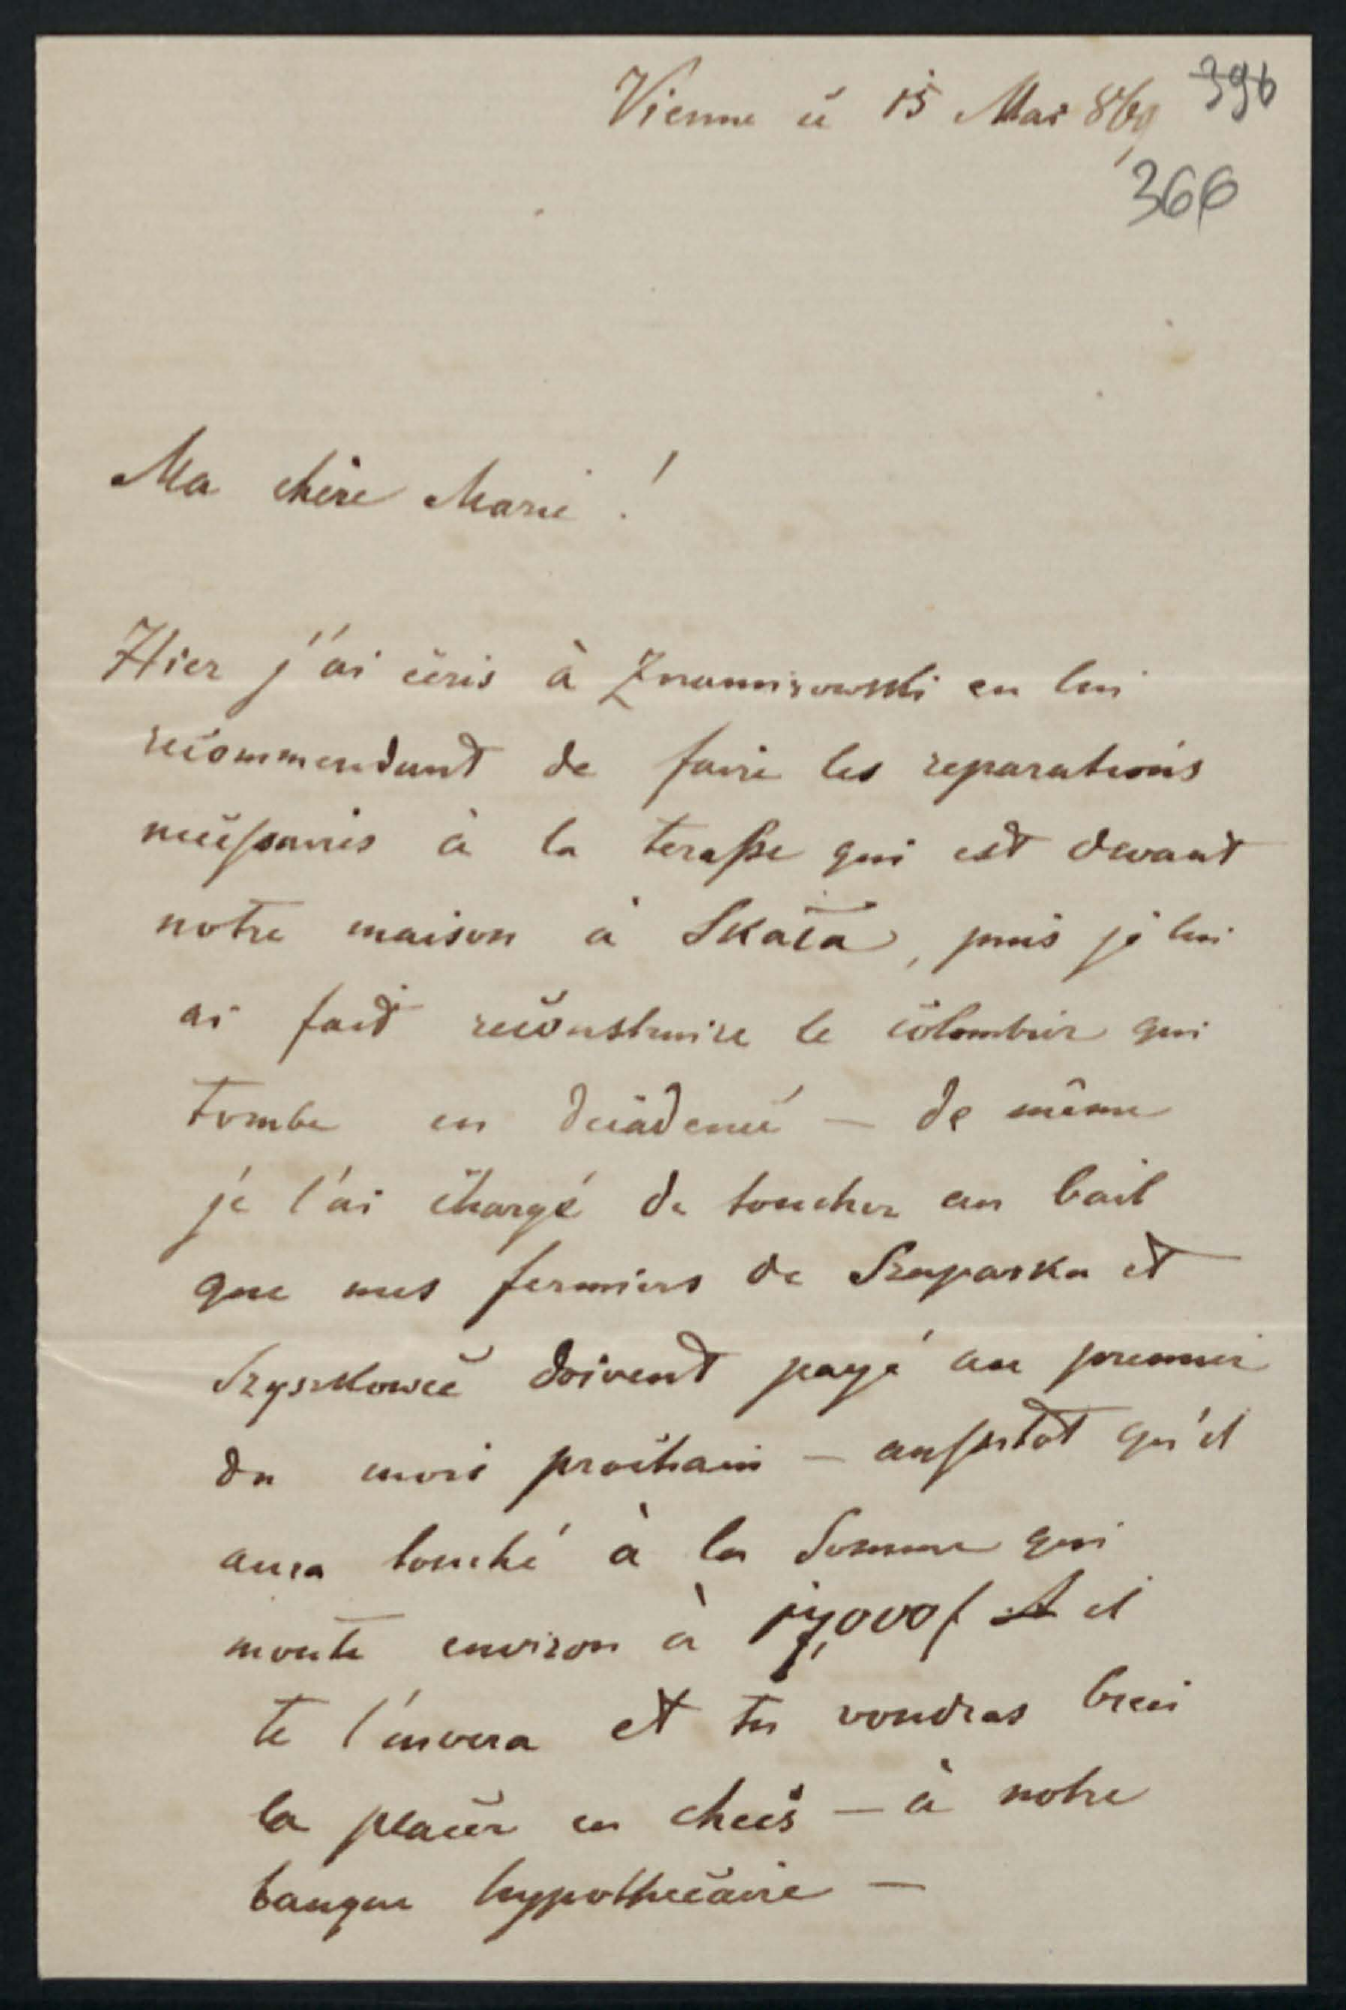 Vienne ce 15 Mai 869
396
366
Ma chère Marie !
Hier j'ai écris à en lui
recommendant de faire les reparations
necessaires à la terasse qui est devant
notre maison à Skała, puis je lui
ai fait reconstruire le colombier qui
tombe en decadence — de même
je l'ai chargé de toucher au bail
que mes fermiers de Szuparka et
Szyszkowce doivent payé au premier
du mois prochain — aussitot qu'il
aura touché à la Somme qui
monte environ à 17,000 f il
te l'envera et tu voudras bien
la placer en checs — à notre
banque hypothecaire —